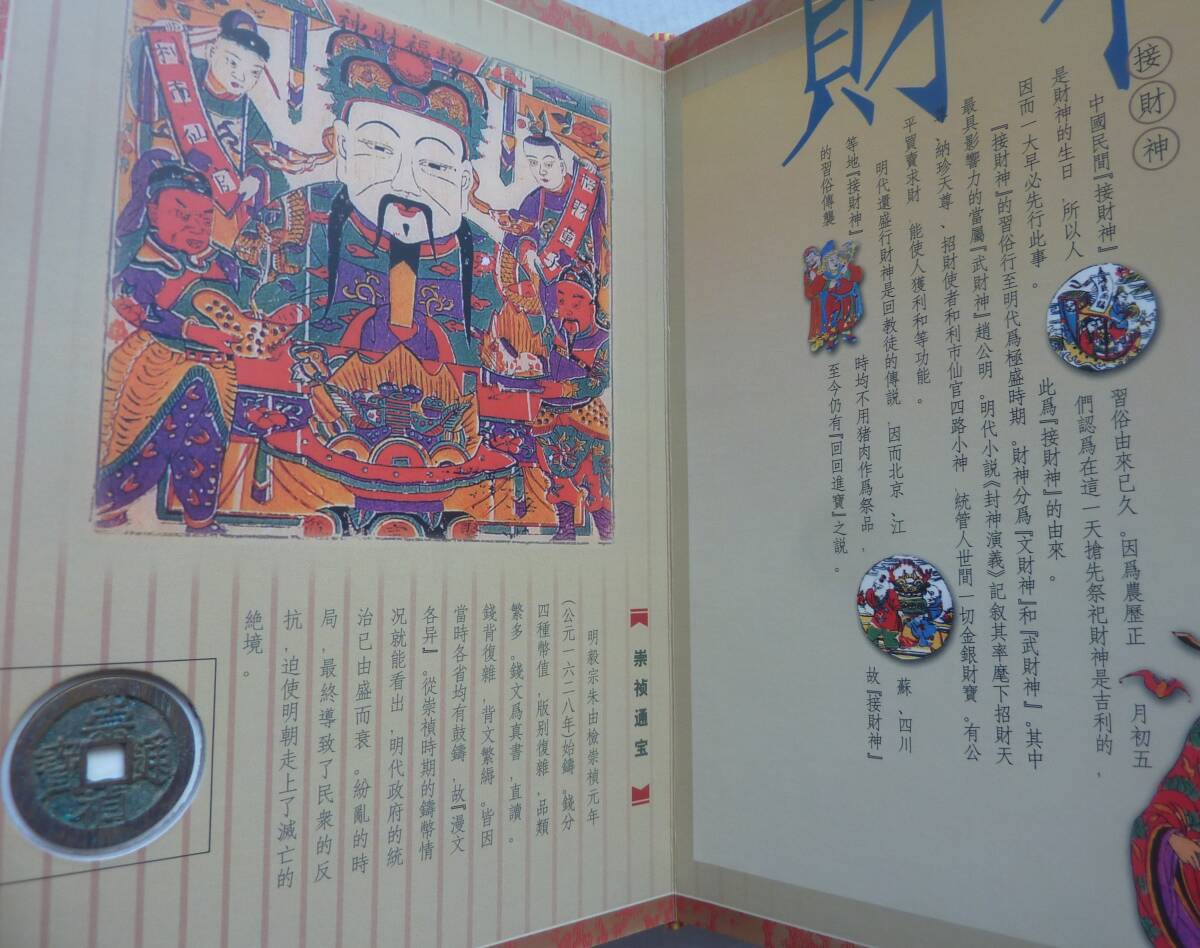 財
接財神
中國民間『接財神』習俗由來已久。因爲農歷正月初五
是財神的生日,所以人們認爲在這一天搶先祭祀財神是吉利的,
因而一大早必先行此事。此爲『接財神』的由來。
『接財神』的習俗行至明代爲極盛時期。財神分爲『文財神』和『武財神』。其中
最具影響力的當屬『武財神』趙公明。明代小説《封神演義》記叙其率麾下招財天
、納珍天尊、招財使者和利市仙官四路小神,統管人世間一切金銀財寶。有公
平買賣求財,能使人獲利和等功能。
明代遺盛行財神是回教徒的傳説,因而北京、江蘇、四川
等地『接財神』時均不用猪肉作爲祭品,故『接財神』
的習俗傳襲至今仍有『回回進寶』之説。
增福財神
市仙官
崇禎通宝
明毅宗朱由檢崇禎元年
(公元一六二八年)始鑄。錢分
四種幣值,版别復雜,品類
繁多。錢文爲真書,直讀。
錢背復雜,背文繁縟。皆因
當時各省均有鼓鑄,故『漫文
各异』。從崇禎時期的鑄幣情
况就能看出,明代政府的統
治已由盛而衰。紛亂的時
局,最終導致了民衆的反
抗,迫使明朝走上了滅亡的
絶境。
崇禎通寶